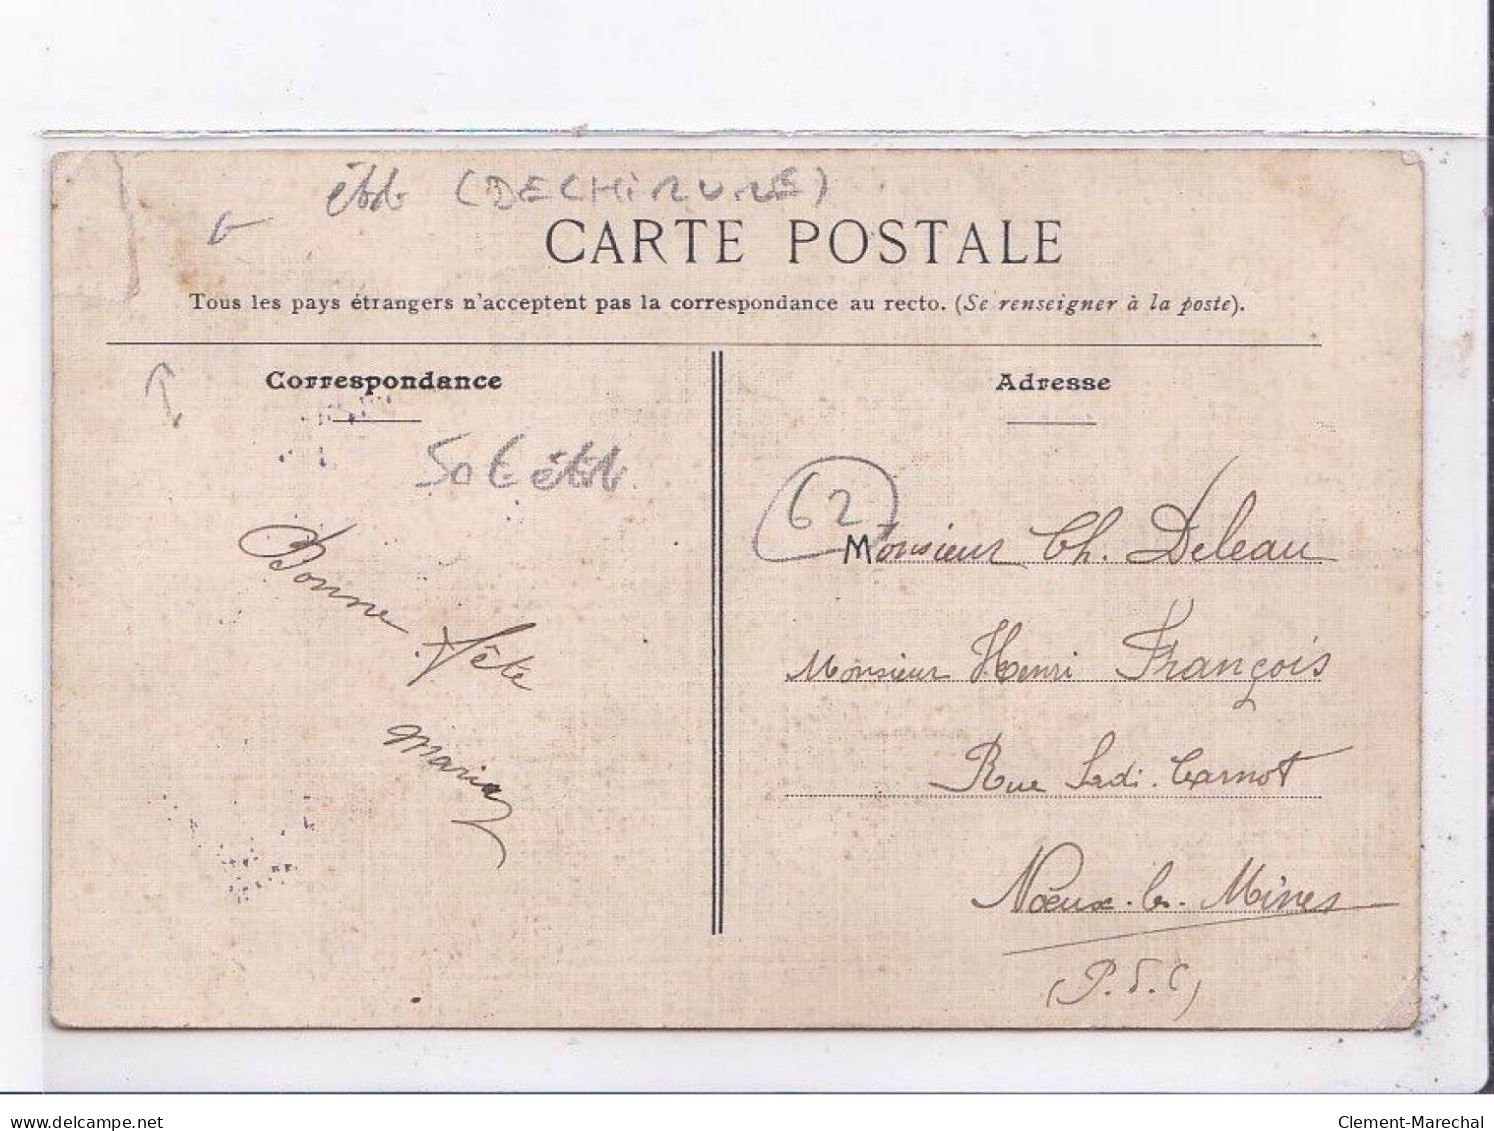 (DECHIRURE)
CARTE POSTALE
Tous les pays étrangers n'acceptent pas la correspondance au recto. (Se renseigner à la poste).
Correspondance
50€
Bonne fête
Maria
Adresse
62
Monsieur Ch. Deleau
Monsieur Henri François
Rue Sadi-Carnot
Nœux-les-Mines
(P.d.C)
www.delcampe.net
Clement-Marechal